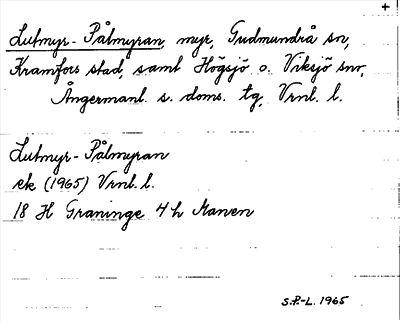 +
Lutmyr-Pålmyran, myr, Gudmundrå sn,
Kramfors stad, samt Högsjö o. Viksjö snr,
Ångermanl. s. doms. tg, Vrnl. l.
Lutmyr-Pålmyran
ek (1965) Vrnl. l.
18 H Graninge 4 h Manen
S.P-L. 1965